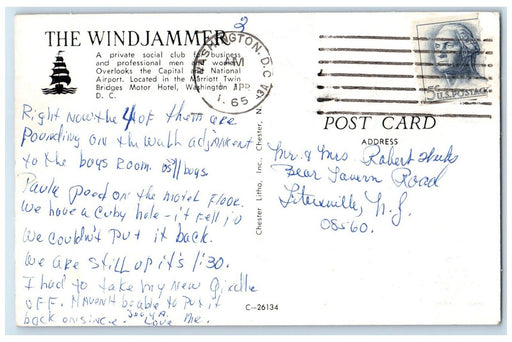 THE WINDJAMMER
2
A private social club for business
and professional men and women.
Overlooks the Capital and National
Airport. Located in the Marriott Twin
Bridges Motor Hotel, Washington
D. C.
WASHINGTON, D.C. 13A
AM
APR
1965
5¢ U.S. POSTAGE
POST CARD
ADDRESS
Mr. & Mrs. Robert Hicks
Bear Tavern Road
Titusville, N.J.
08560.
Right now the 4 of them are
pounding on the wall adjainent
to the boys Room. 8 boys.
Paula peed on the motel Floor.
We have a cuby hole - it fell in
We couldn't Put it back.
We are still up it's 1:30.
I had to take my new girdle
OFF. Havent be able to put it
back on since.
Love Me.
Chester Litho, Inc., Chester, N.
C-26134